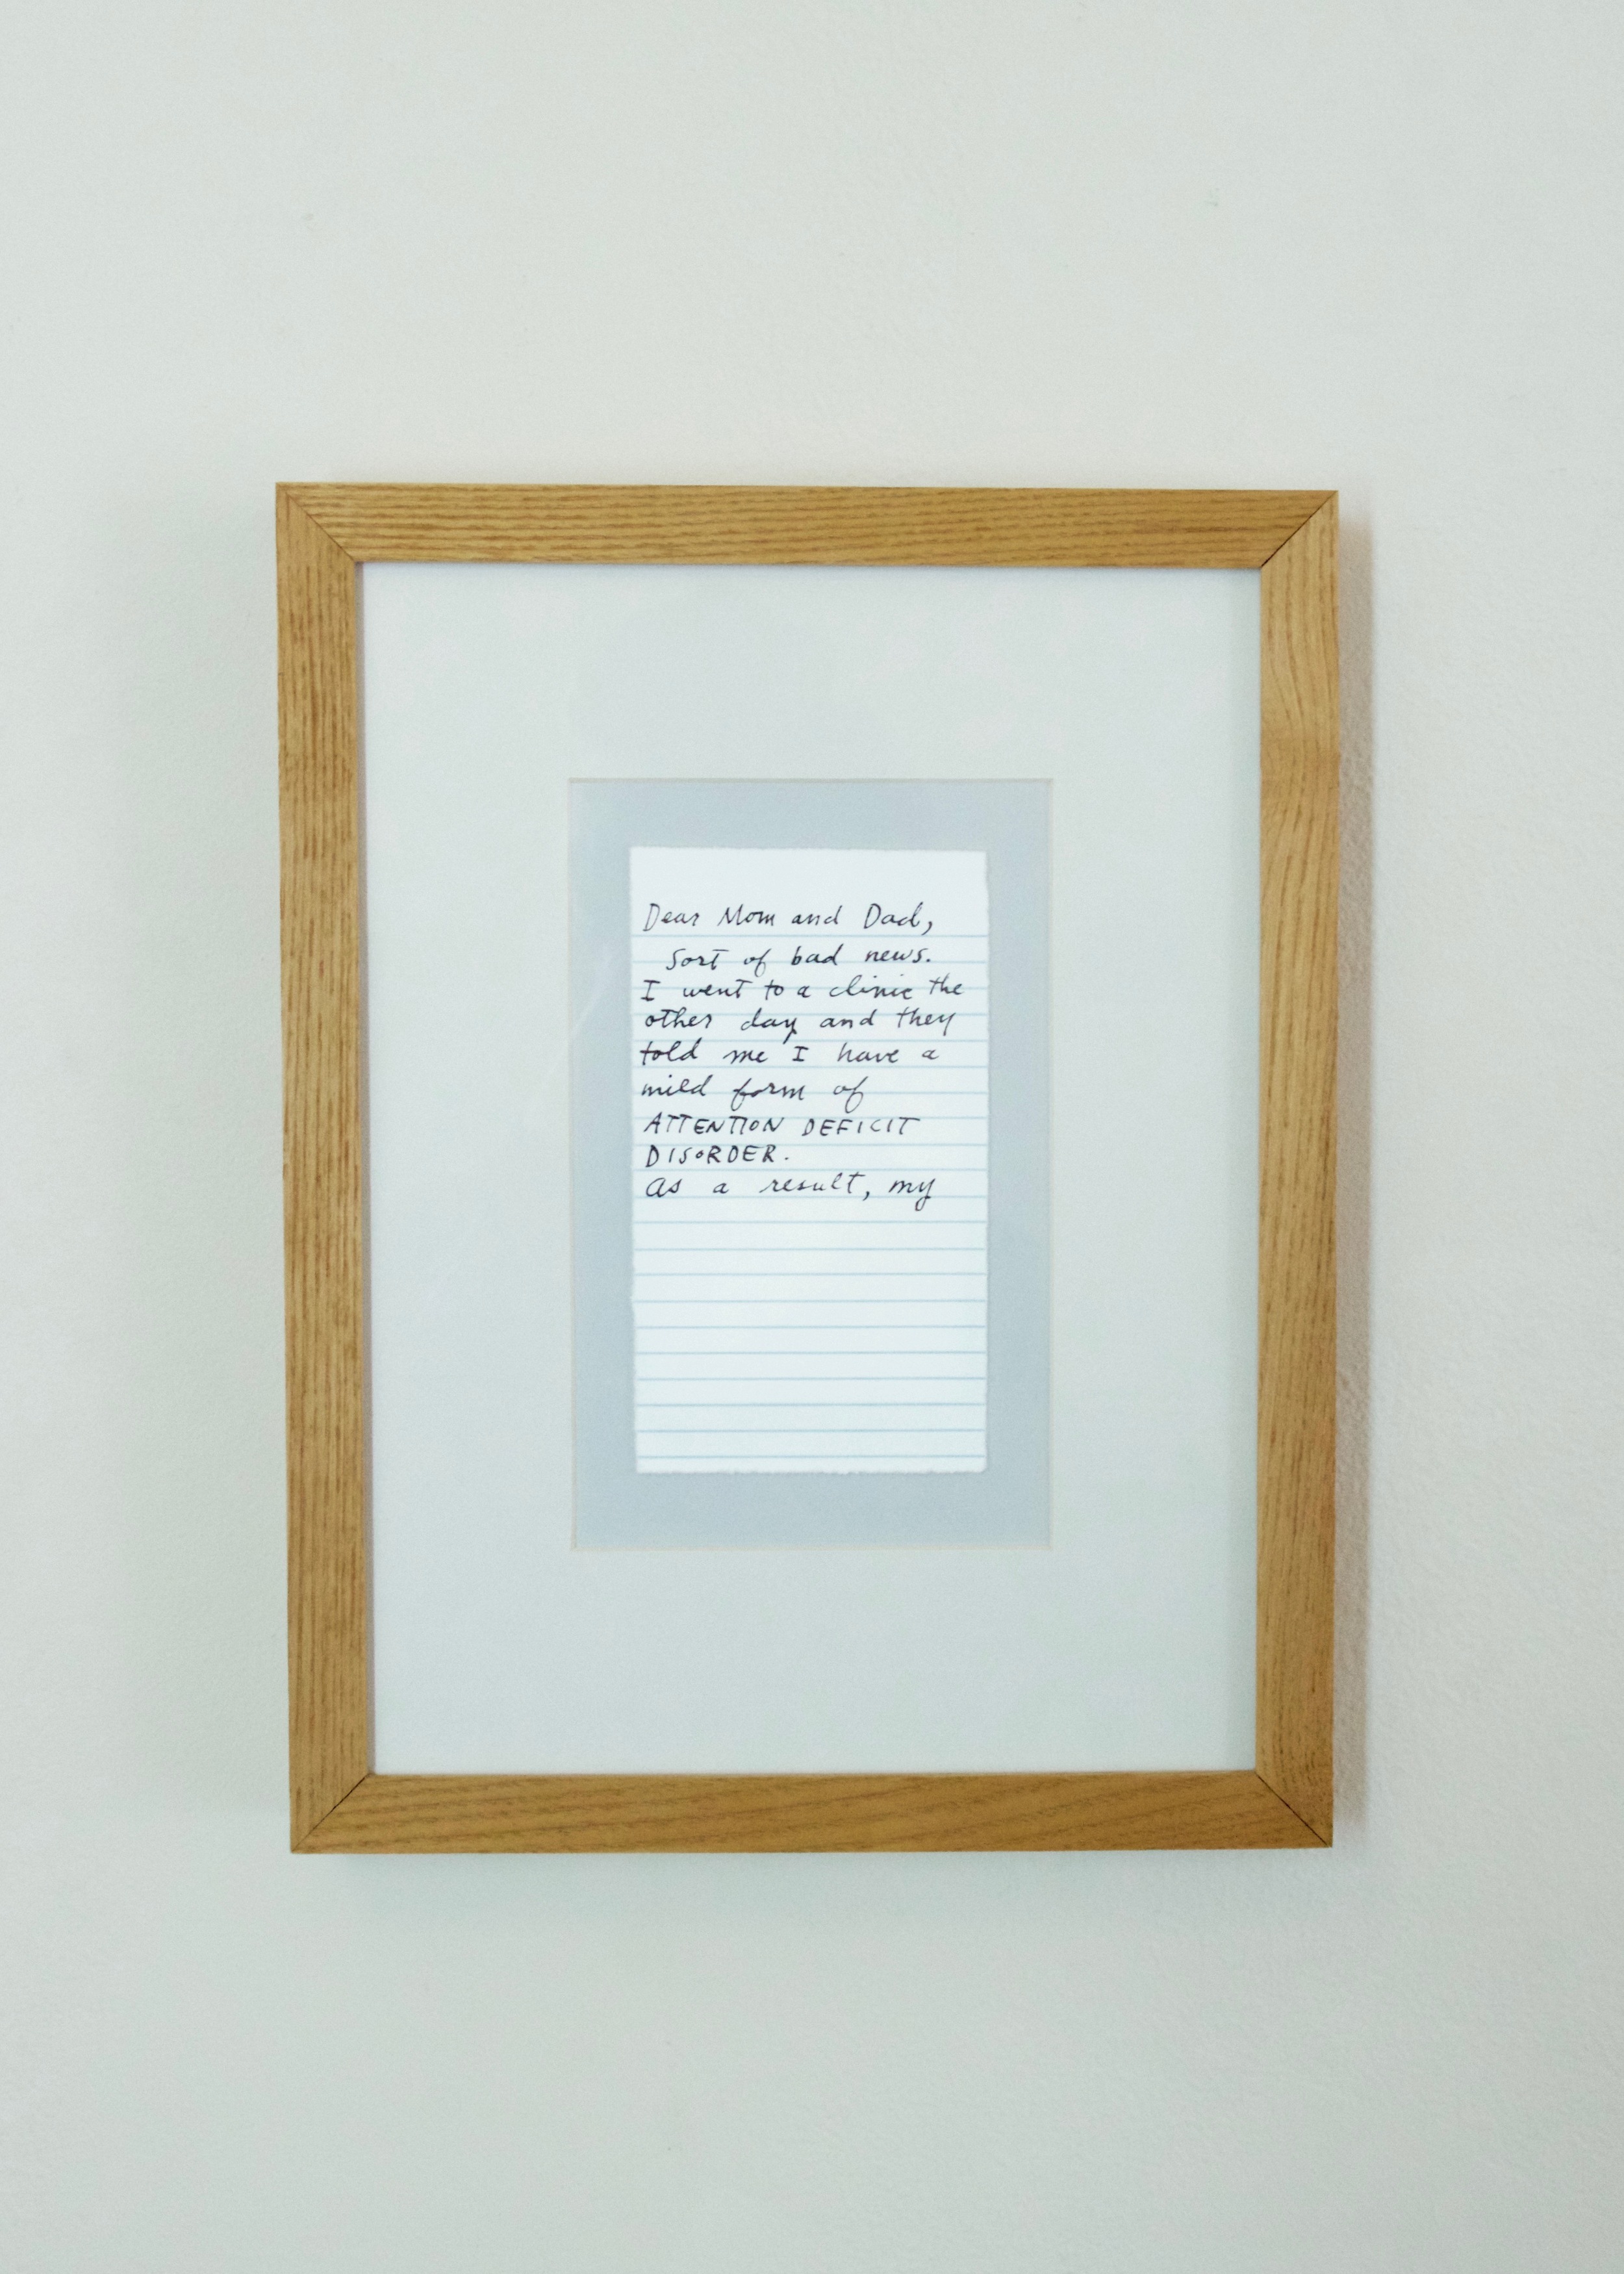 Dear Mom and Dad,
Sort of bad news.
I went to a clinic the
other day and they
told me I have a
mild form of
ATTENTION DEFICIT
DISORDER.
As a result, my